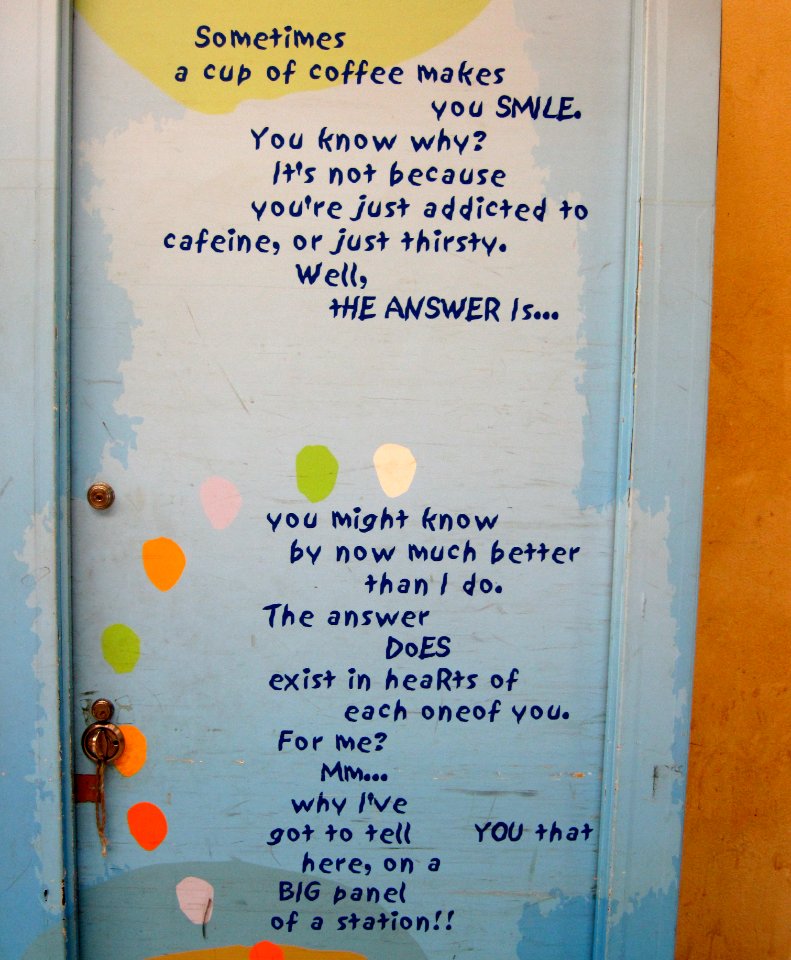 Sometimes
a cup of coffee makes
you SMILE.
You know why?
It's not because
you're just addicted to
cafeine, or just thirsty.
Well,
tHE ANSWER Is...
you might know
by now much better
than I do.
The answer
DoES
exist in heaRts of
each oneof you.
For me?
Mm...
why I've
got to tell YOU that
here, on a
BIG panel
of a station!!